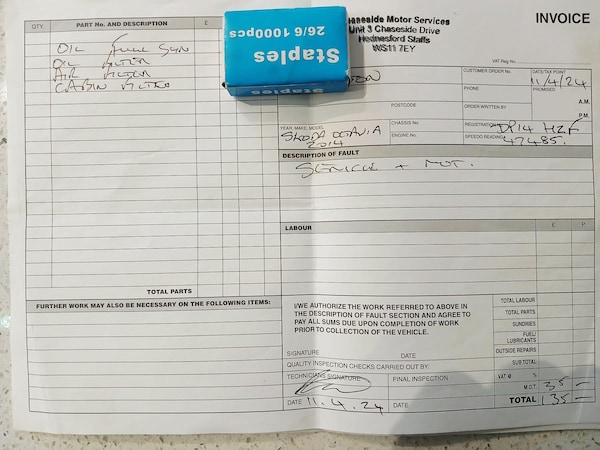 INVOICE
haseside Motor Services
Unit 3 Chaseside Drive
Hednesford Staffs
WS11 7EY
VAT Reg No.
QTY. PART No. AND DESCRIPTION £
OIL FULL SYN
OIL FILTER
AIR FILTER
CABIN FILTER
TOTAL PARTS
FURTHER WORK MAY ALSO BE NECESSARY ON THE FOLLOWING ITEMS:
26/6 1000pcs
Staples
CUSTOMER ORDER No. DATE/TAX POINT
11/4/24
PHONE PROMISED
A.M.
POSTCODE ORDER WRITTEN BY
P.M.
CHASSIS No. REGISTRATION
YEAR, MAKE, MODEL ENGINE No. SPEEDO READING
SKODA OCTAVIA
2014
47485.
DESCRIPTION OF FAULT
SERVICE + MOT.
LABOUR £ P
I/WE AUTHORIZE THE WORK REFERRED TO ABOVE IN
THE DESCRIPTION OF FAULT SECTION AND AGREE TO
PAY ALL SUMS DUE UPON COMPLETION OF WORK
PRIOR TO COLLECTION OF THE VEHICLE.
SIGNATURE DATE
QUALITY INSPECTION CHECKS CARRIED OUT BY:
TECHNICIANS SIGNATURE FINAL INSPECTION
DATE 11.4.24 DATE
TOTAL LABOUR
TOTAL PARTS
SUNDRIES
FUEL/
LUBRICANTS
OUTSIDE REPAIRS
SUB TOTAL
VAT @ %
M.O.T. 35 —
TOTAL 135 —